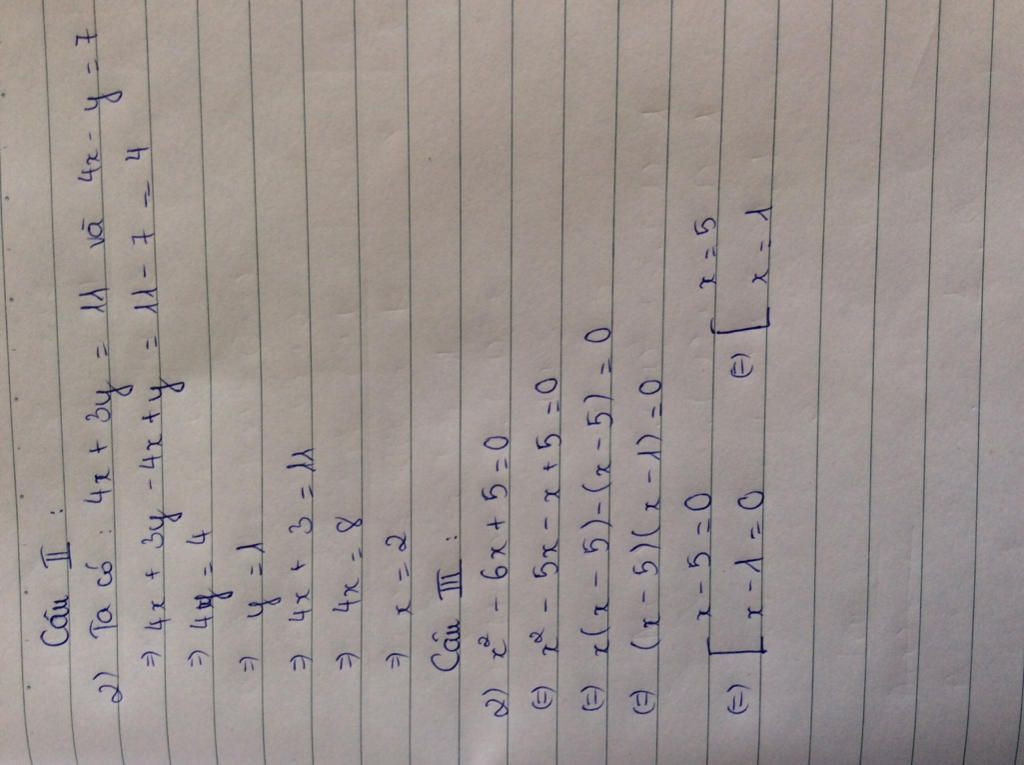 Câu II :
2) Ta có : 4x + 3y = 11 và 4x - y = 7
=) 4x + 3y - 4x + y = 11 - 7 = 4
=) 4y = 4
=) y = 1
=) 4x + 3 = 11
=) 4x = 8
=) x = 2
Câu III :
2) x² - 6x + 5 = 0
(=) x² - 5x - x + 5 = 0
(=) x(x - 5) - (x - 5) = 0
(=) (x - 5)(x - 1) = 0
(=) [ x - 5 = 0 (=) [ x = 5
x - 1 = 0 x = 1